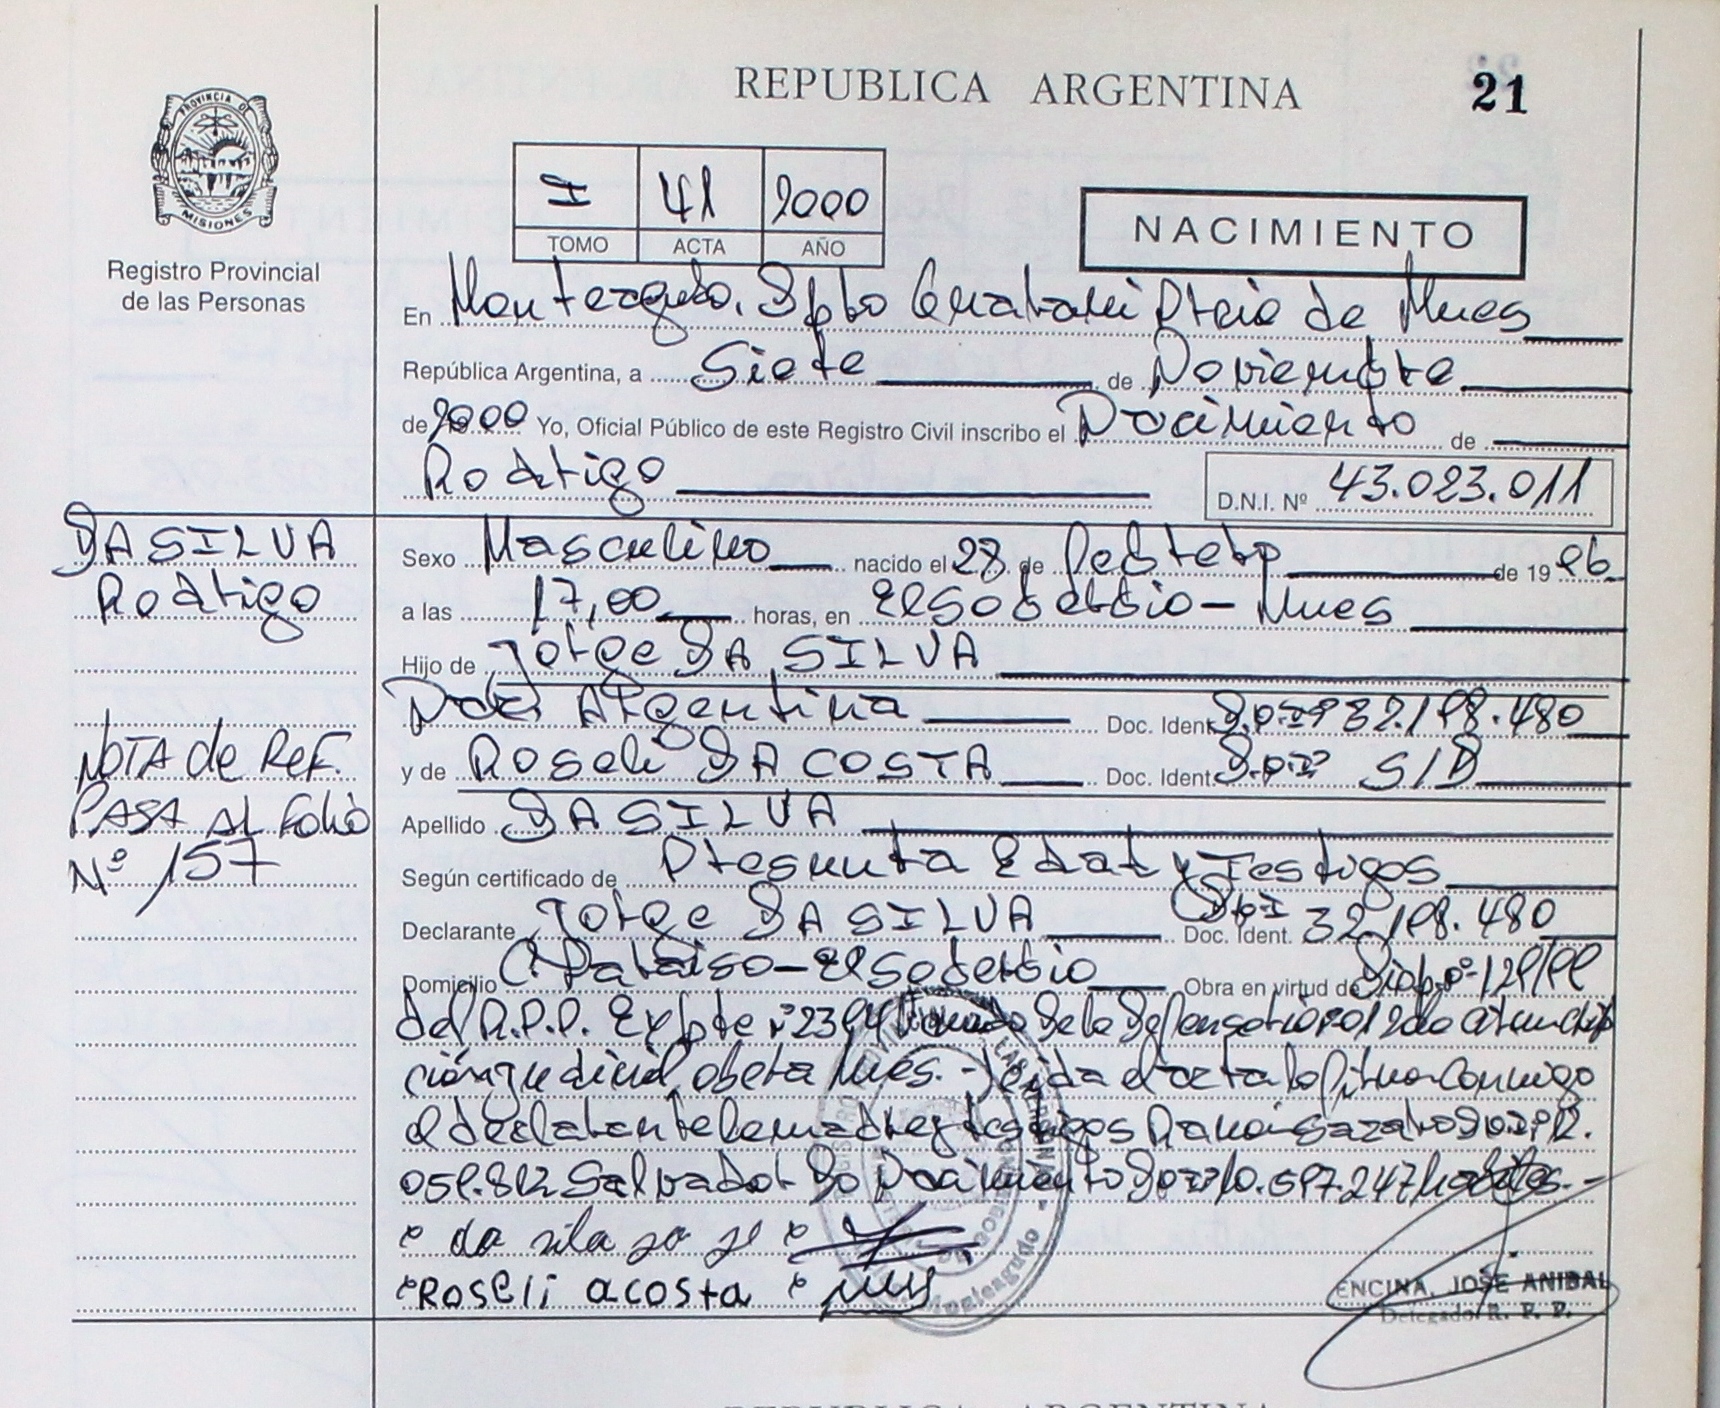 REPUBLICA ARGENTINA
21
PROVINCIA DE
MISIONES
Registro Provincial
de las Personas
I 41 2000
TOMO ACTA AÑO
NACIMIENTO
En Monteagudo, Dpto Guarani Pcia de Mnes
República Argentina, a Siete de Noviembre
de 2000 Yo, Oficial Público de este Registro Civil inscribo el Nacimiento de
Rodrigo
D.N.I. Nº 43.023.011
DA SILVA
Rodrigo
Sexo Masculino nacido el 28 de Febrero de 19 96
a las 17,00 horas, en El Soberbio - Mnes
Hijo de Jorge DA SILVA
Nac. Argentina Doc. Ident. D.N.I. 32.198.480
y de Roseli DA COSTA Doc. Ident. D.N.I. S/D
Apellido DA SILVA
NOTA de REF.
PASA AL Folio
Nº 157
Según certificado de Presunta Edad y Testigos
Declarante Jorge DA SILVA Doc. Ident. DNI 32.198.480
Domicilio C. Paraiso - El Soberbio Obra en virtud de Disp. Nº 129/99
del R.P.P. Expte Nº de la Defensoria
ción judicial, obera Mnes. - Leida el acta la firman conmigo
el declarante la madre y testigos Ramon
Salvador Do Nacimiento habiles. -
da silva
Roseli acosta
ENCINA, JOSE ANIBAL
Delegado R. P. P.
REPUBLICA ARGENTINA